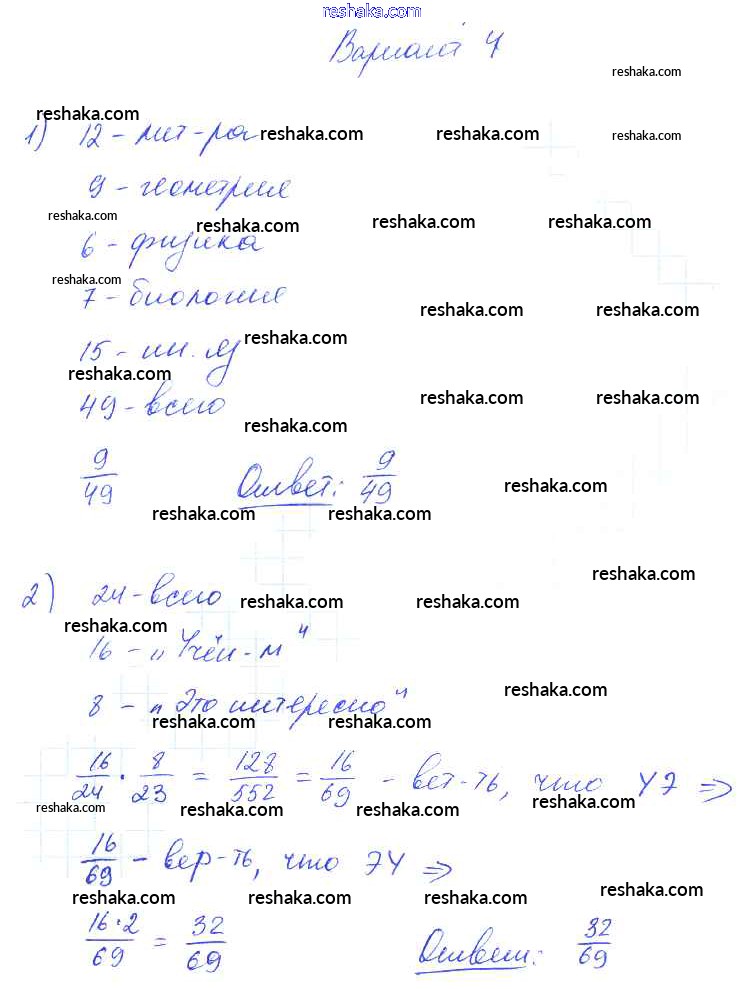 reshaka.com
Вариант 4
reshaka.com
reshaka.com
1) 12 - лит-ра reshaka.com reshaka.com reshaka.com
9 - геометрия
reshaka.com reshaka.com reshaka.com reshaka.com
6 - физика
reshaka.com
7 - биология reshaka.com reshaka.com
15 - ин. яз reshaka.com
reshaka.com
49 - всего reshaka.com reshaka.com
reshaka.com
9/49 Ответ: 9/49 reshaka.com
reshaka.com reshaka.com
reshaka.com
2) 24 - всего reshaka.com reshaka.com
reshaka.com
16 - „Учён-м"
reshaka.com
8 - „Это интересно"
reshaka.com reshaka.com
16/24 · 8/23 = 128/552 = 16/69 - вет-ть, что УЭ ⇒
reshaka.com reshaka.com reshaka.com reshaka.com
16/69 - вер-ть, что ЭУ ⇒
reshaka.com reshaka.com reshaka.com reshaka.com
16·2/69 = 32/69 Ответ: 32/69
reshaka.com reshaka.com reshaka.com